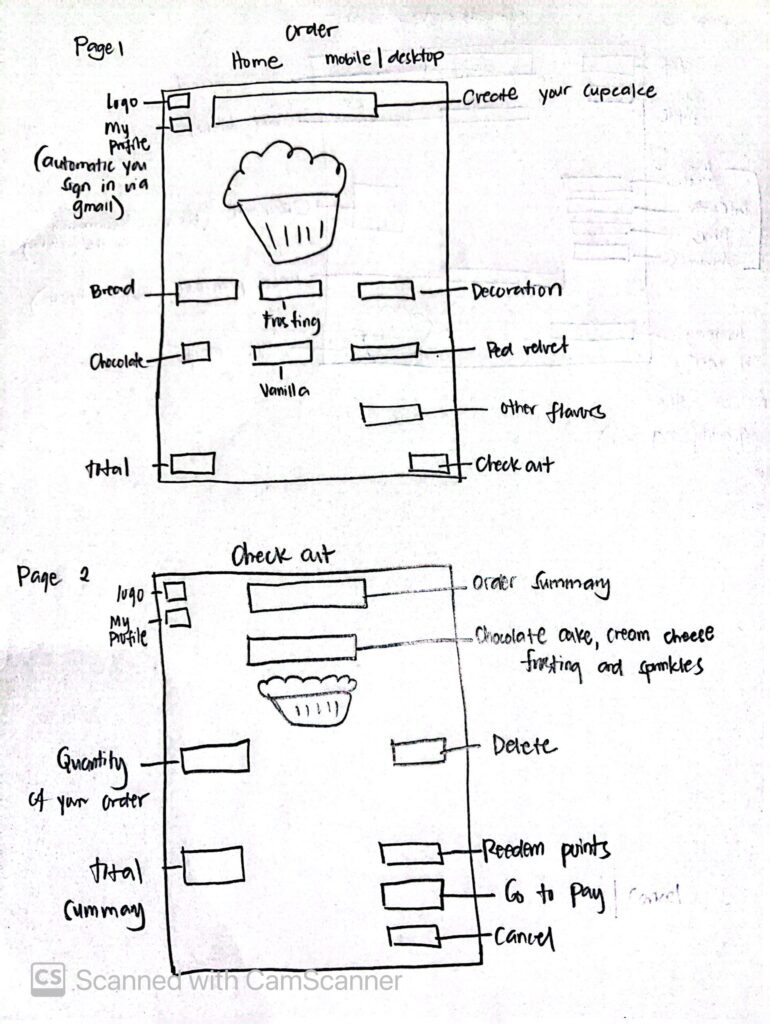 Page 1
Order
Home mobile | desktop
logo
Create your cupcake
My
profile
(automatic you
sign in via
gmail)
Bread
Frosting
Decoration
Chocolate
Vanilla
Red velvet
other flavors
total
Check out
Page 2
Check out
logo
My
Profile
Order summary
Chocolate cake, cream cheese
frosting and sprinkles
Quantity
of your order
Delete
total
summary
Reedem points
Go to pay | cancel
Cancel
CS Scanned with CamScanner